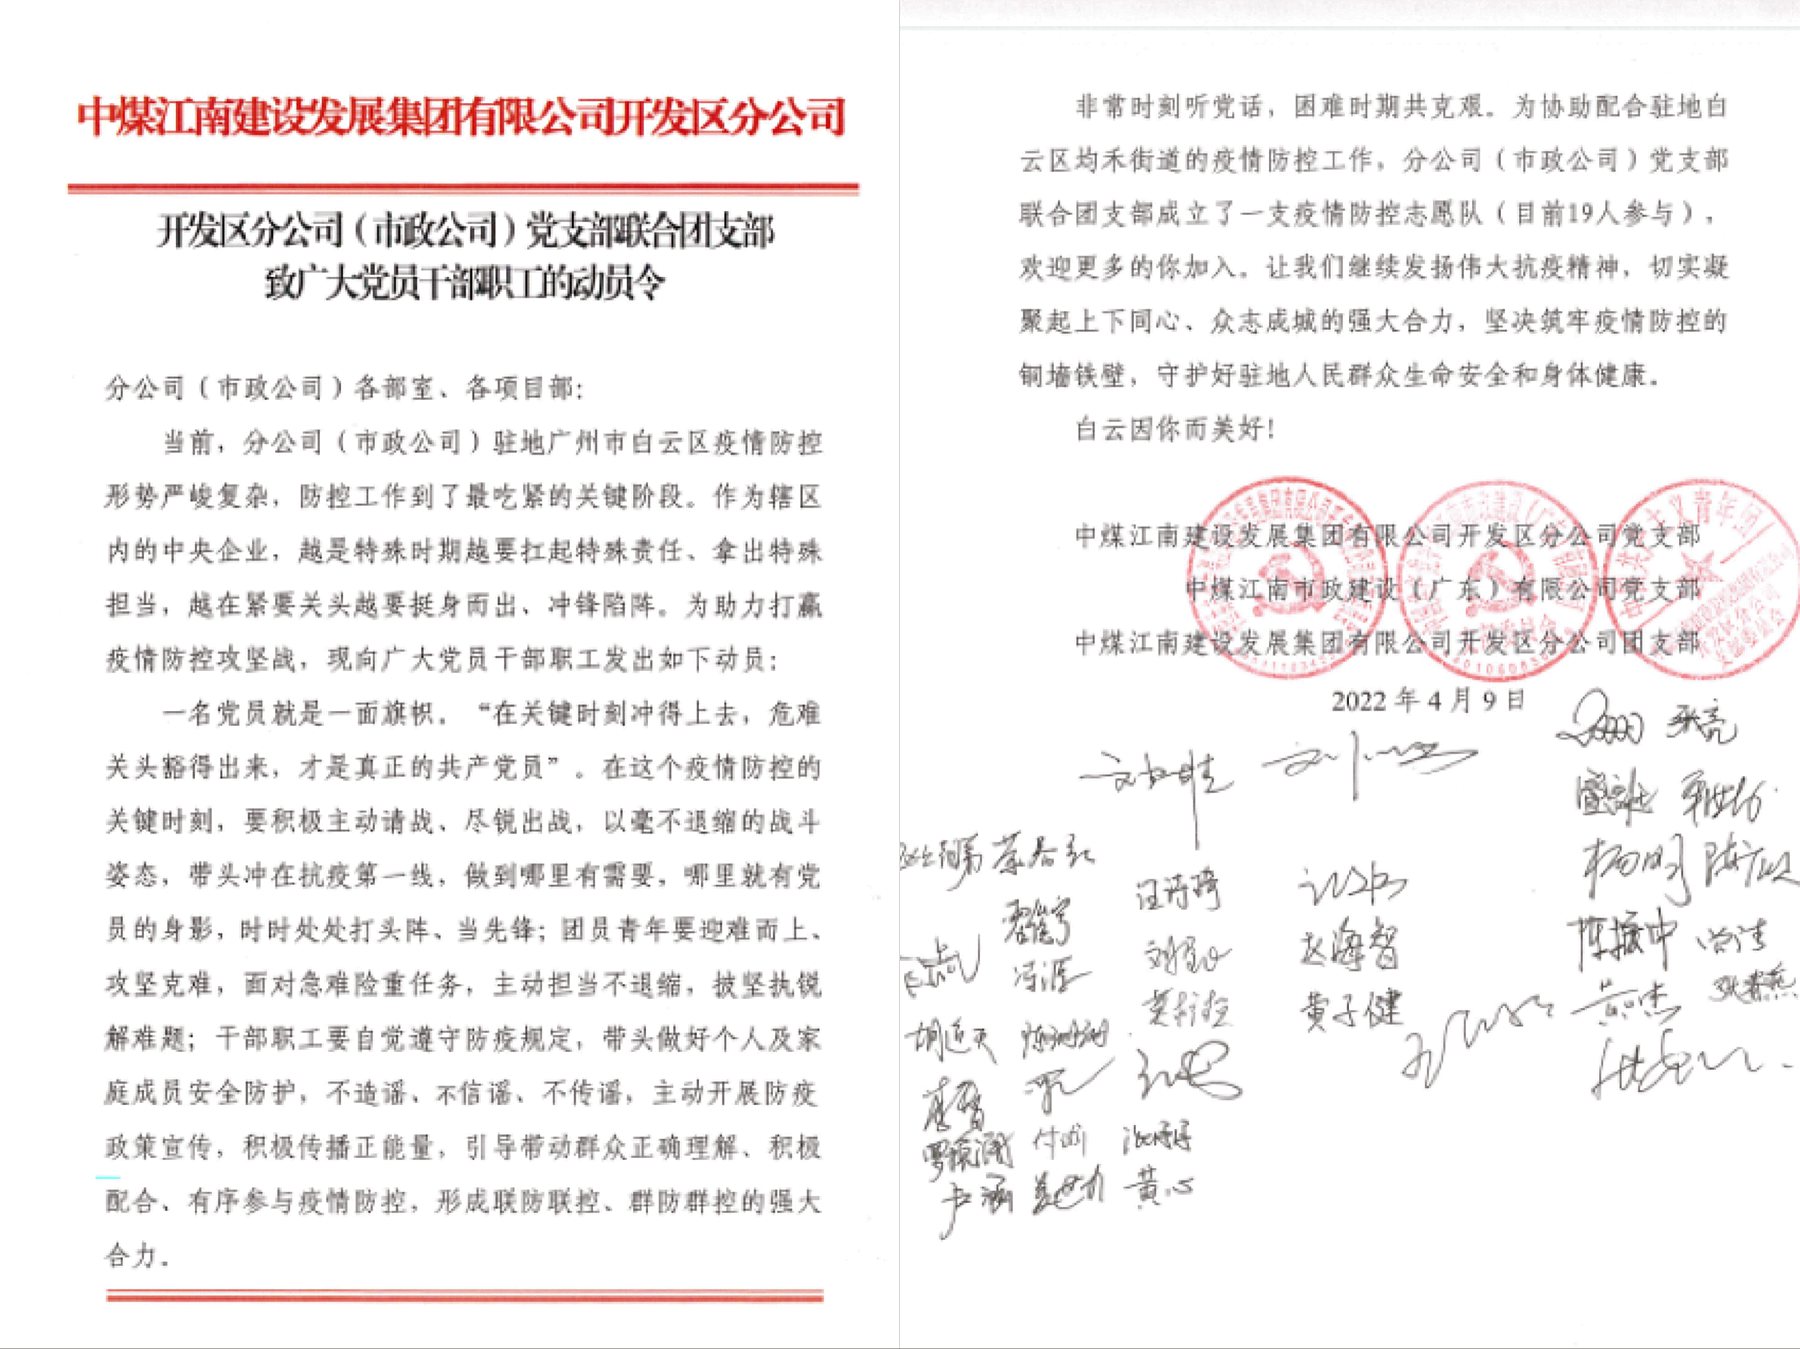 中煤江南建设发展集团有限公司开发区分公司
开发区分公司（市政公司）党支部联合团支部
致广大党员干部职工的动员令
分公司（市政公司）各部室、各项目部：
当前，分公司（市政公司）驻地广州市白云区疫情防控
形势严峻复杂，防控工作到了最吃紧的关键阶段。作为辖区
内的中央企业，越是特殊时期越要扛起特殊责任、拿出特殊
担当，越在紧要关头越要挺身而出、冲锋陷阵。为助力打赢
疫情防控攻坚战，现向广大党员干部职工发出如下动员：
一名党员就是一面旗帜。“在关键时刻冲得上去，危难
关头豁得出来，才是真正的共产党员”。在这个疫情防控的
关键时刻，要积极主动请战、尽锐出战，以毫不退缩的战斗
姿态，带头冲在抗疫第一线，做到哪里有需要，哪里就有党
员的身影，时时处处打头阵、当先锋；团员青年要迎难而上、
攻坚克难，面对急难险重任务，主动担当不退缩，披坚执锐
解难题；干部职工要自觉遵守防疫规定，带头做好个人及家
庭成员安全防护，不造谣、不信谣、不传谣，主动开展防疫
政策宣传，积极传播正能量，引导带动群众正确理解、积极
配合、有序参与疫情防控，形成联防联控、群防群控的强大
合力。
非常时刻听党话，困难时期共克艰。为协助配合驻地白
云区均禾街道的疫情防控工作，分公司（市政公司）党支部
联合团支部成立了一支疫情防控志愿队（目前19人参与），
欢迎更多的你加入。让我们继续发扬伟大抗疫精神，切实凝
聚起上下同心、众志成城的强大合力，坚决筑牢疫情防控的
铜墙铁壁，守护好驻地人民群众生命安全和身体健康。
白云因你而美好！
中煤江南建设发展集团有限公司开发区分公司党支部
中煤江南市政建设（广东）有限公司党支部
中煤江南建设发展集团有限公司开发区分公司团支部
2022年4月9日
汪诗琦
赵海智
黄子健
杨明
陈振中
黄杰
冯源
胡逆天
卢涵
黄心